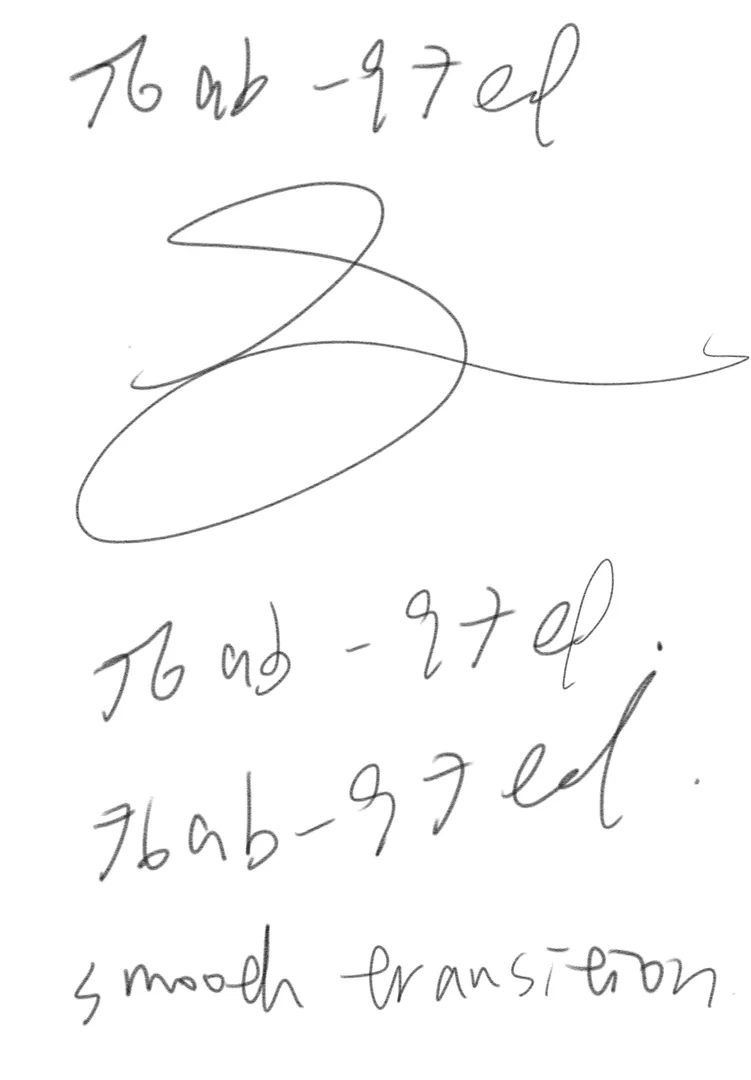 76ab-97ed
76ab-97ed.
76ab-97ed.
smooth transition